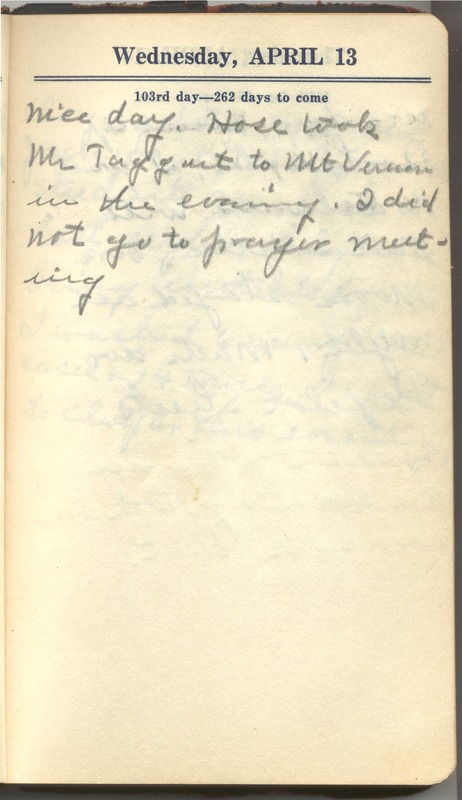 Wednesday, APRIL 13
103rd day—262 days to come
Nice day. Hose took
Mr Taggart to Mt Vernon
in the evening. I did
not go to prayer meet-
ing